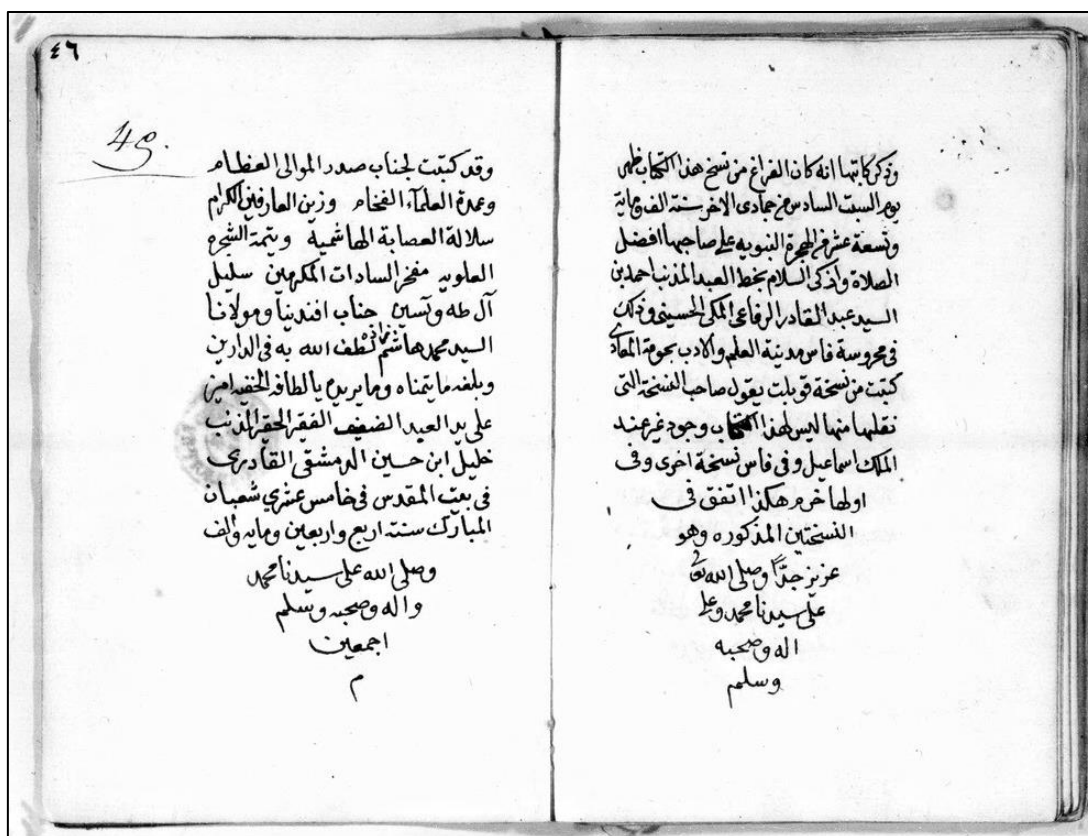 وذكر كاتبها انه كان الفراغ من نسخ هذا الكتاب ظهر
يوم السبت السادس من جمادى الاخر سنة الف وماية
وتسعة عشر من الهجرة النبويه على صاحبها افضل
الصلاة واذكى السلام بخط العبد المذنب احمد بن
السيد عبد القادر الرفاعى المكى الحسينى وذلك
فى محروسة فاس مدينة العلم والادب بحومة المعادى
كتبت من نسخة قوبلت يقول صاحب النسخة التى
نقلها منها ليس لهذا الكتاب وجود غير عند
الملك اسماعيل وفى فاس نسخة اخرى وفى
اولها خرم هكذا اتفق فى
النسختين المذكوره وهو
عزيز جدًا وصلى الله تعا
على سيدنا محمد وعلى
اله وصحبه
وسلم
٤٦
49.
وقد كتبت لجناب صدر الموالى العظام
وعمدة العلمآء الفخام وزين العارفين الكرام
سلالة العصابة الهاشمية ويتمة الشجره
العلويه مفخر السادات المكرمين سليل
آل طه ويسين جناب افندينا ومولانا
السيد محمد هاشم لطف الله به فى الدارين
وبلغه ما يتمناه وما يريده بالطافه الخفيه امين
على يد العبد الضعيف الفقير الحقير المذنب
خليل ابن حسين الدمشقى القادرى
فى بيت المقدس فى خامس عشري شعبان
المبارك سنة اربع واربعين ومايه والف
وصلى الله على سيدنا محمد
واله وصحبه وسلم
اجمعين
م